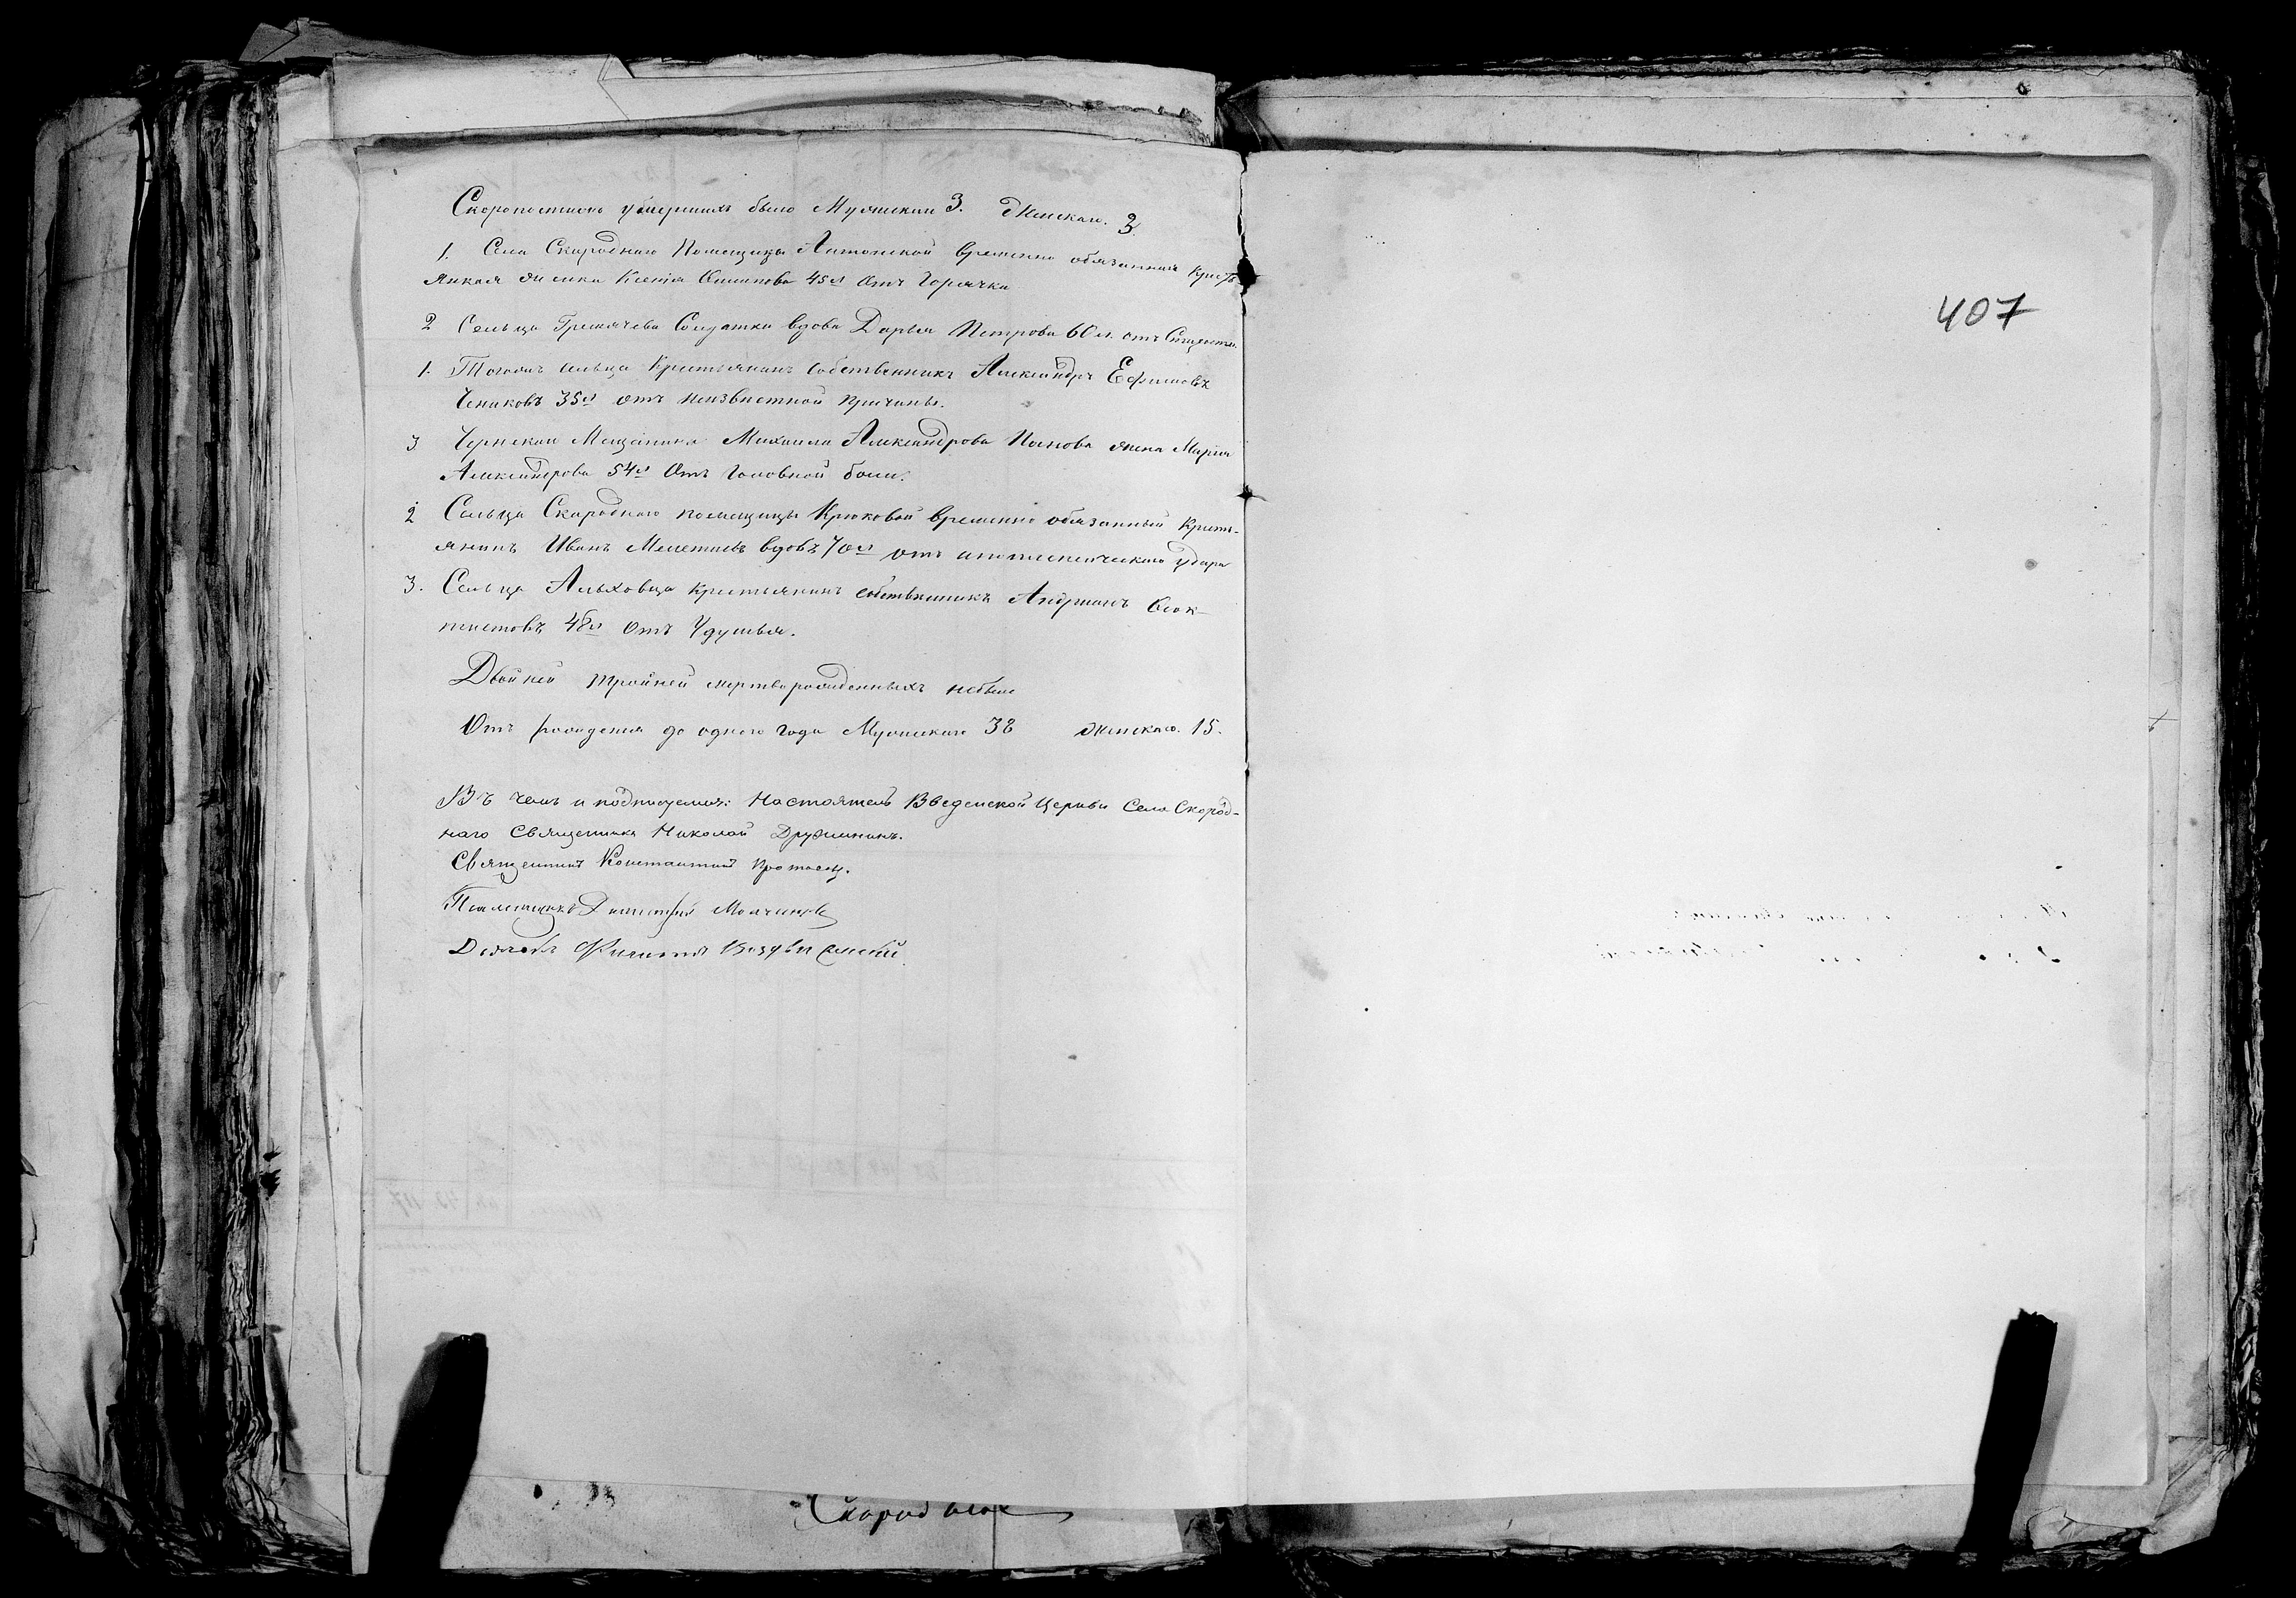 Скоропостижно умершихъ было Мужскаго 3. Женскаго. 3
1. Села Скороднаго Помещицы Антонской временно обязанная кресть
янская женка Ксенія Осипова 45 л Отъ Горячки
2 Сельца Гремячева Солдатка вдова Дарья Петрова 60 л. отъ Старости.
1. Тогожъ сельца Крестьянинъ собственникъ Александръ Ефимовъ
35 л отъ неизвѣстной Причины.
3 Чернскаго Мещанина Михаила Александрова Панова жена Марія
Александрова 54 л Отъ Головной боли.
2 Сельца Скороднаго помещицы Крюковой временно обязанный Крестъ-
янинъ Иванъ Мелетіевъ вдовъ 70 л отъ апоплексическаго удара
3. Сельца Альховца крестьянинъ собственникъ Андріанъ Ѳеок-
тистовъ 48 л Отъ Удушья.
Двойней тройней мертворожденныхъ небыло
Отъ рожденія до одного года Мужскаго 38 Женскаго. 15.
Въ чемъ и подписуемся: Настоятель Введенской Церкви Села Скород-
наго Священникъ Николай Дружининъ.
Священникъ Константинъ
Псаломщикъ Димитрій Молчановъ
Дьячекъ Филиппъ Воздвиженскій.
407
Скородное